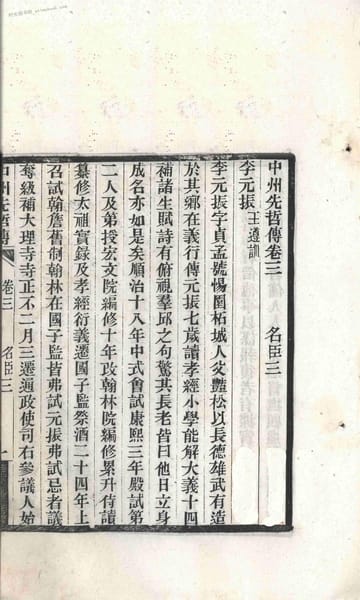 中州先哲傳卷三 名臣三
李元振 王遵訓
李元振字貞孟號惕園柘城人父豔松以長德雄武有造
於其鄉在義行傳元振七歲讀孝經小學能解大義十四
補諸生賦詩有俯視羣邱之句驚其長老皆曰他日立身
成名亦如是矣順治十八年中式會試康熙三年殿試第
二人及第授宏文院編修十年改翰林院編修累升侍讀
纂修太祖實錄及孝經衍義遷國子監祭酒二十四年上
召試翰詹舊制翰林在國子監皆弗試元振弗試忌者議
奪級補大理寺寺正不二月三遷通政使司右參議人始
中州先哲傳 卷三 名臣三 一